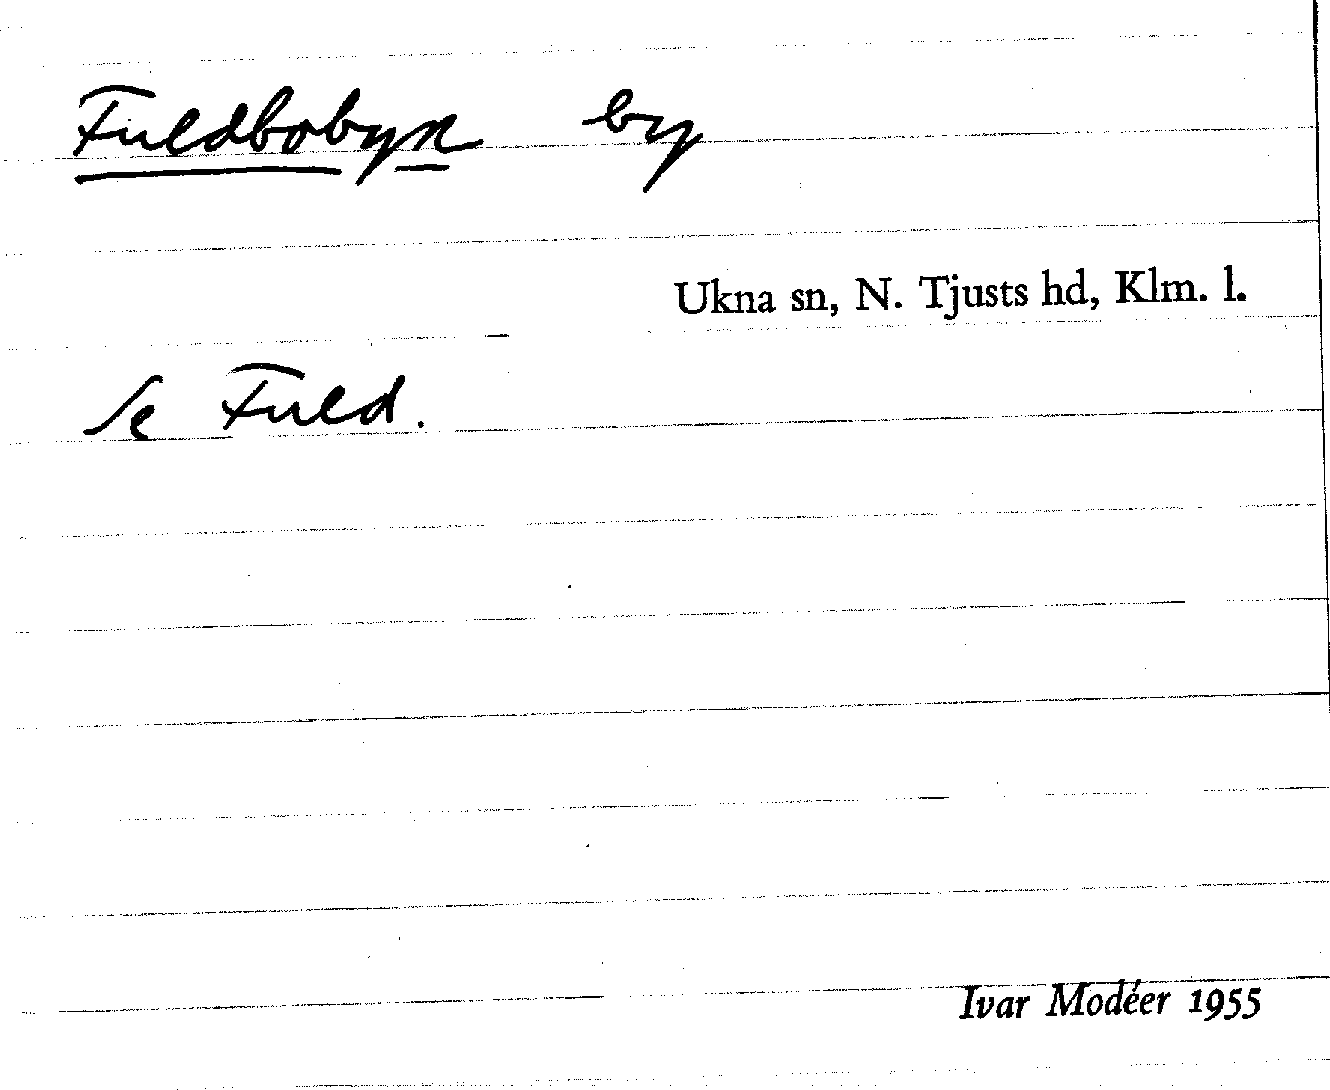 Fuldbobyn by
Ukna sn, N. Tjusts hd, Klm. l.
Se Fuld.
Ivar Modéer 1955